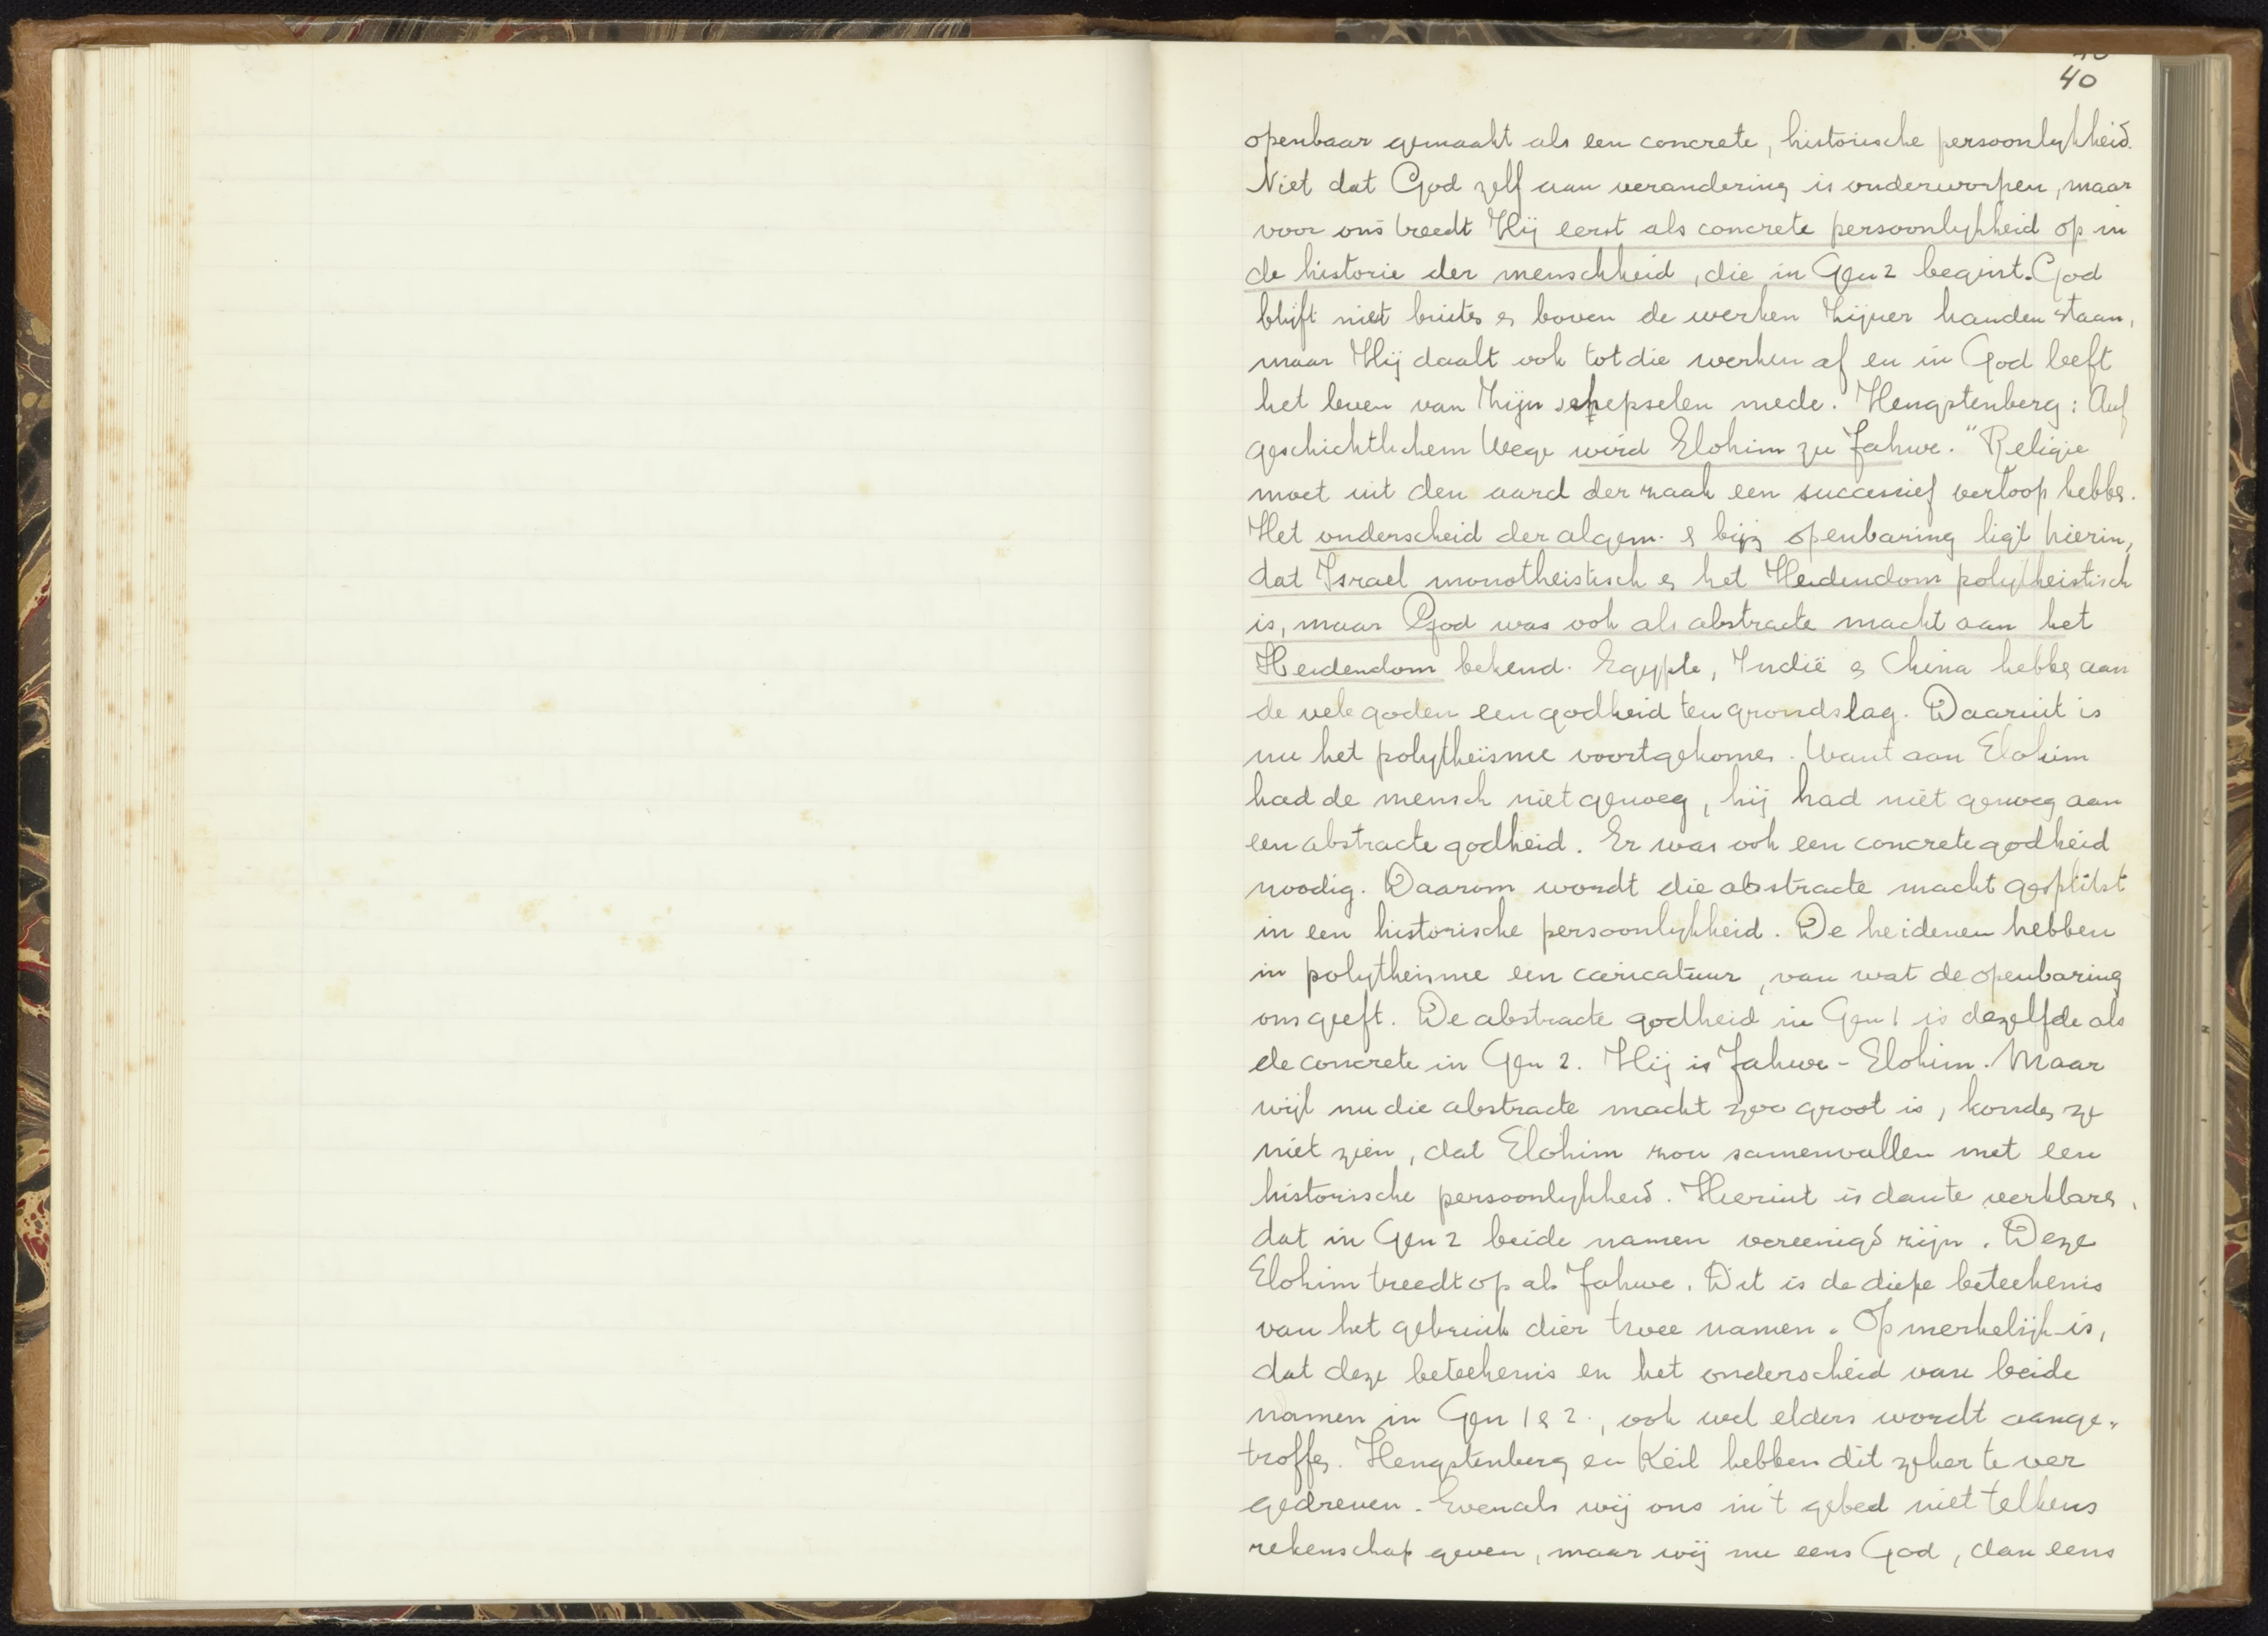 40
openbaar gemaakt als een concrete, historische persoonlykheid.
Niet dat God zelf aan verandering is onderworpen, maar
voor ons treedt Hij eerst als concrete persoonlykheid op in
de historie der menschheid, die in Gen 2 begint. God
blijft niet buiten en boven de werken Zijner handen staan,
maar Hij daalt ook tot die werken af en in God leeft
het leven van Zijn schepselen mede. Hengstenberg: Auf
geschichtlichem Wege wird Elohim zu Jahwe." Religie
moet uit den aard der zaak een successief verloop hebben.
Het onderscheid der algem. & bijz openbaring ligt hierin,
dat Israel monotheistisch en het Heidendom polytheistisch
is, maar God was ook als abstracte macht aan het
Heidendom bekend. Egypte, Indië en China hebben aan
de vele goden een godheid ten grondslag. Daaruit is
nu het polytheïsme voortgekomen. Want aan Elohim
had de mensch niet genoeg, hij had niet genoeg aan
een abstracte godheid. Er was ook een concrete godheid
noodig. Daarom wordt die abstracte macht gesplitst
in een historische persoonlykheid. De heidenen hebben
in polytheisme een caricatuur, van wat de openbaring
ons geeft. De abstracte godheid in Gen 1 is dezelfde als
de concrete in Gen 2. Hij is Jahwe-Elohim. Maar
wijl nu die abstracte macht zoo groot is, konden ze
niet zien, dat Elohim zou samenvallen met een
historische persoonlykheid. Hieruit is dan te verklaren,
dat in Gen 2 beide namen vereenigd zijn. Deze
Elohim treedt op als Jahwe. Dit is de diepe beteekenis
van het gebruik dier twee namen. Opmerkelijk is,
dat deze beteekenis en het onderscheid van beide
namen in Gen 1 & 2., ook wel elders wordt aange-
troffen. Hengstenberg en Keil hebben dit zeker te ver
gedreven. Evenals wij ons in 't gebed niet telkens
rekenschap geven, maar wij nu eens God, dan eens